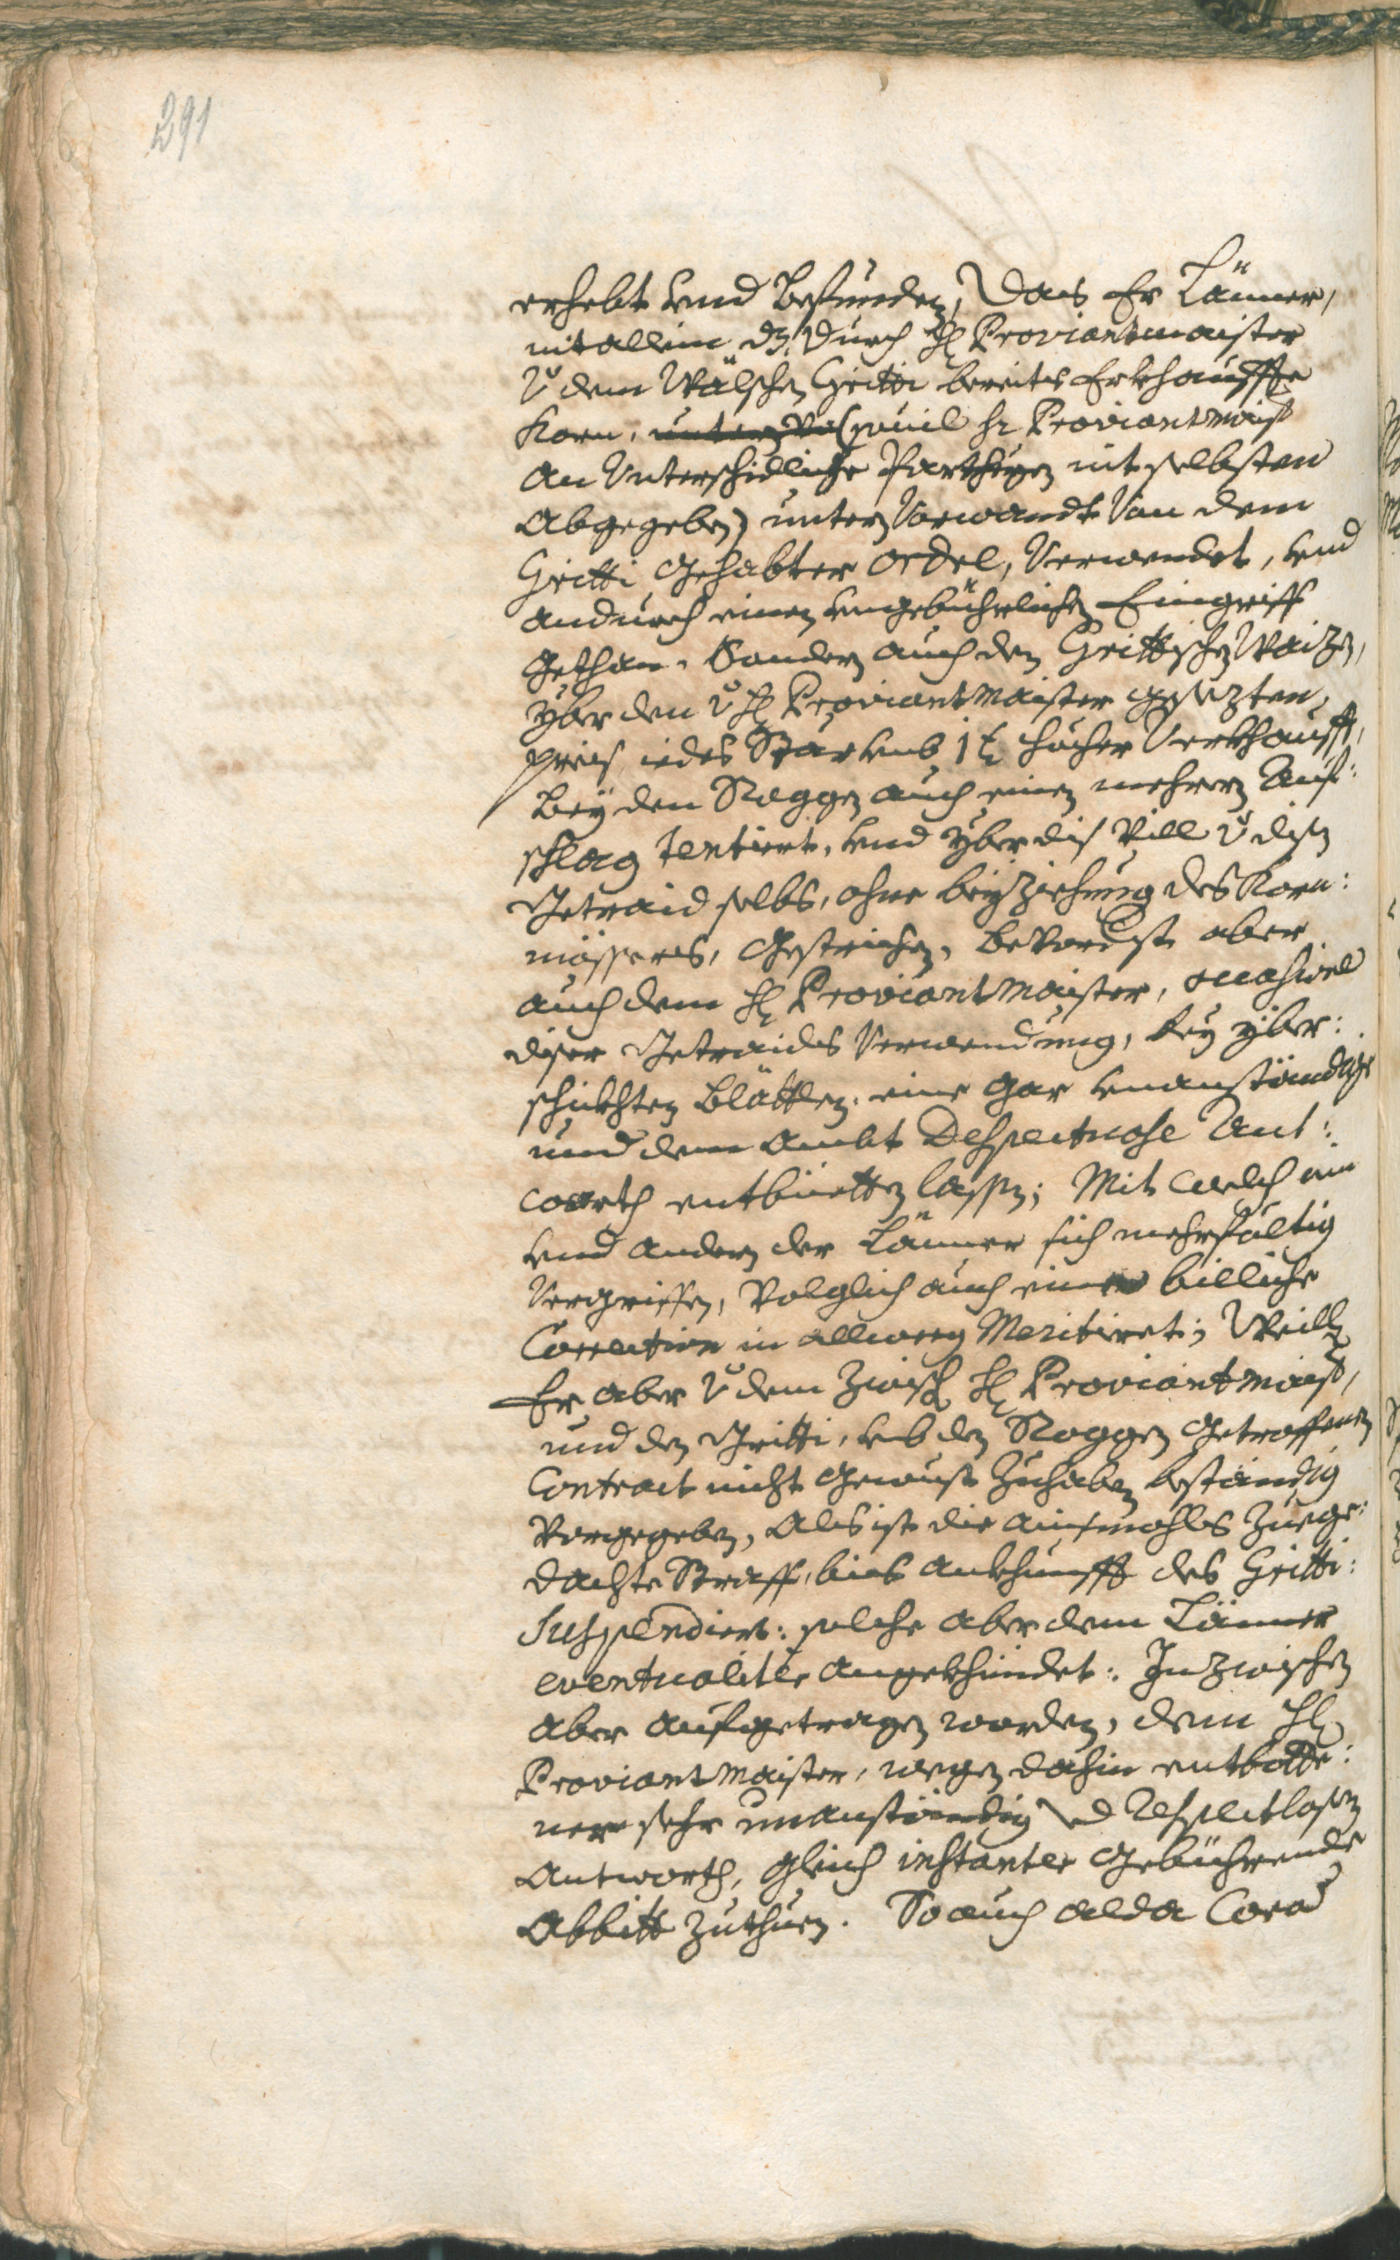 291
erhebt und befunden, Das Er Länner,
nit allein dz durch H. Proviantmaister
v dem Wälschen Gritti bereits erkhauffte
Korn, (souil Hr Proviantmaist
an Vnterschidliche Partheyen nit selbsten
abgegeben) unter Vorwandt von dem
Gritti gehabter ordre, Verwendet, und
andurch einen ungebührlichen Eingriff
gethan, Sondern auch den Grittischen Waizen,
yber den v H. Proviantmaister gesezten
Preis iedes Star umb 1 höcher Verkhaufft,
bey den Roggen auch einen mehrern Auf:
schlag tentiert, und yber dis vill v disen
Getraid selbs, ohne beyziehung des Korn:
mössers, gestrichen, bevorderist aber
auch dem H. Proviantmaister, occasione
diser Getraids Verwendung, bey yber:
schikhten blättlen, eine gar unanständige
und dem Ambt Despectuose Ant:
worth entbietten lassen; Mit welch ein
und andern der Länner sich mehrfältig
vergriffen, volglich auch eine billiche
Correction in allweeg Meritiret; Weillen
Er aber v dem zwisch H. Proviantmaist,
und den Gritti, umb den Roggen getroffenen
Contract nicht gewust zuhaben beständig
vorgegeben, Als ist die ainsmahls zuege:
dachte Straff, bies ankhunfft des Gritti:
suspendiert: solche aber dem Länner
eventualiter angekhindet: Inzwischen
aber aufgetragen worden, dem H.
Proviantmaister, wegen dahin entbotte:
ner sehr unanständig und respectlosen
Antworth, gleich instanter gebührende
Abbitt zuthuen. So auch alda Cora